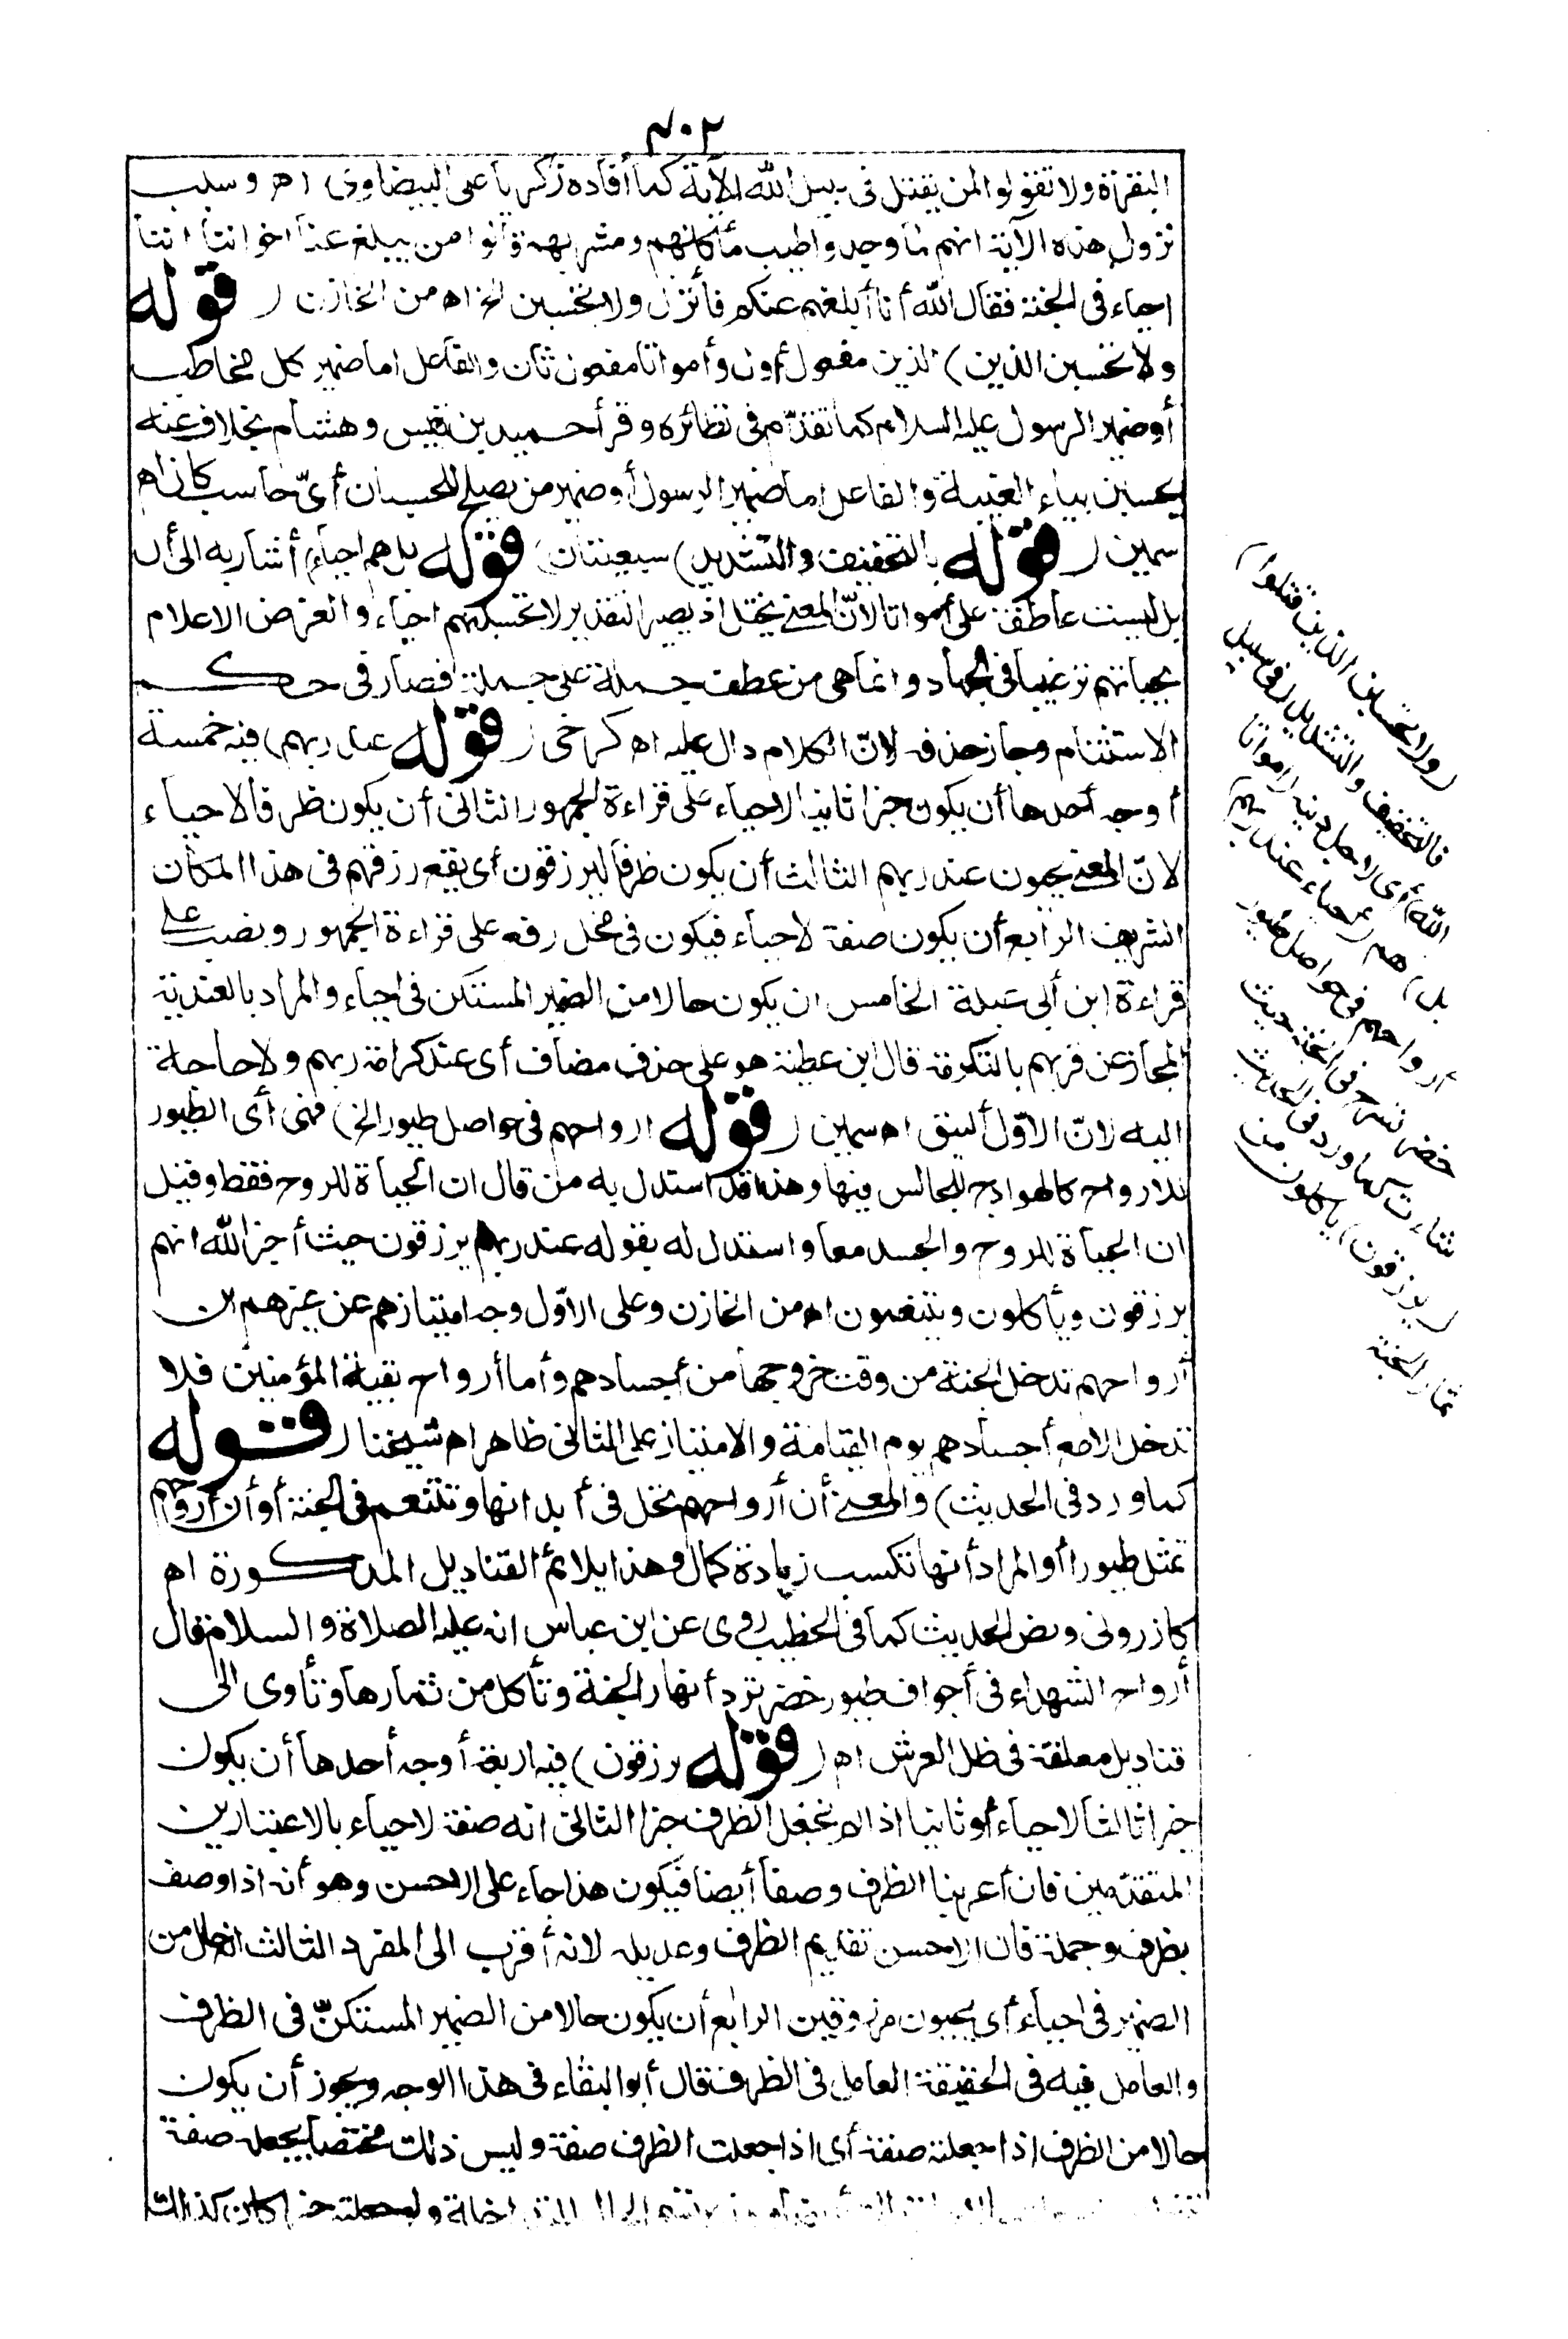 ٤٠٢
البقرة ولا تقولوا لمن يقتل فى سبيل الله الآية كما أفاده زكريا على البيضاوى اهـ وسبب
نزول هذه الآية انهم لما وجدوا طيب مأكلهم ومشربهم قالوا من يبلغ عنا اخواننا اننا
احياء فى الجنة فقال الله أنا أبلغهم عنكم فأنزل ولا تحسبن الخ اهـ من الخازن (قوله
ولا تحسبن الذين) الذين مفعول أول وأمواتا مفعول ثان والفاعل اما ضمير كل مخاطب
أو ضمير الرسول عليه السلام كما تقدّم فى نظائره وقرأ حميد بن قيس وهشام بخلاف عنه
يحسبن بياء الغيبة والفاعل اما ضمير الرسول أو ضمير من يصلح للحسبان أىّ حاسب كان اهـ
سمين (قوله بالتخفيف والتشديد) سبعيتان (قوله بل هم احياء) أشار به الى أن
بل ليست عاطفة على أمواتا لانّ المعنى يختل اذ يصير التقدير لا تحسبنهم احياء والغرض الاعلام
بحياتهم ترغيبا فى الجهاد وانما هى من عطف جملة على جملة فصار فى حكم
الاستئنام وجاز حذف لانّ الكلام دال عليه اهـ كرخى (قوله عند ربهم) فيه خمسة
أوجه أحدها أن يكون خبرا ثانيا لاحياء على قراءة الجمهور الثانى أن يكون ظرفا لاحياء
لانّ المعنى يحيون عند ربهم الثالث أن يكون ظرفا ليرزقون أى يقع رزقهم فى هذا المكان
الشريف الرابع أن يكون صفة لاحياء فيكون فى محل رفع على قراءة الجمهور ونصب على
قراءة ابن أبى عبلة الخامس ان يكون حالا من الضمير المستكن فى احياء والمراد بالعندية
المجاز عن قربهم بالتكرمة قال ابن عطية هو على حذف مضاف أى عند كرامة ربهم ولا حاجة
اليه لانّ الاوّل أليق اهـ سمين (قوله ارواحهم فى حواصل طيور الخ) فهى أى الطيور
للارواح كالهوادج للجالس فيها وهذا قد استدل به من قال ان الحياة للروح فقط وقيل
ان الحياة للروح والجسد معا واستدل له بقوله عند ربهم يرزقون حيث أخبر الله انهم
يرزقون ويأكلون ويتنعمون اهـ من الخازن وعلى الاوّل وجه امتيازهم عن غيرهم ان
أرواحهم تدخل الجنة من وقت خروجها من أجسادهم وأما أرواح بقية المؤمنين فلا
تدخل الا مع أجسادهم يوم القيامة والامتياز على الثانى ظاهر اهـ شيخنا (قوله
كما ورد فى الحديث) والمعنى أن أرواحهم تحل فى أبدانها وتتنعم فى الجنة أو أن أرواحهم
تمثل طيورا أو المراد أنها تكسب زيادة كمال وهذا يلائم القناديل المذكورة اهـ
كازرونى ونص الحديث كما فى الخطيب روى عن ابن عباس انه عليه الصلاة والسلام قال
أرواح الشهداء فى أجواف طيور خضر ترد أنهار الجنة وتأكل من ثمارها وتأوى الى
قناديل معلقة فى ظل العرش اهـ (قوله يرزقون) فيه اربعة أوجه أحدها أن يكون
خبرا ثالثا لاحياء أو ثانيا اذا لم نجعل الظرف خبرا الثانى انه صفة لاحياء بالاعتبارين
المتقدّمين فان أعربنا الظرف وصفا أيضا فيكون هذا جاء على الاحسن وهو أنه اذا وصف
بظرف وجملة فان الاحسن تقديم الظرف وعديله لانه أقرب الى المفرد الثالث انه حال من
الضمير فى احياء أى يحيون مرزوقين الرابع أن يكون حالا من الضمير المستكنّ فى الظرف
والعامل فيه فى الحقيقة العامل فى الظرف قال أبو البقاء فى هذا الوجه ويجوز أن يكون
حالا من الظرف اذا جعلته صفة أى اذا جعلت الظرف صفة وليس ذلك مختصا بجعله صفة
ولو جعلته خبرا كان كذلك
(ولا تحسبن الذين قتلوا)
بالتخفيف والتشديد (فى سبيل
الله) أى لاجل دينه (أمواتا
بل) هم (أحياء عند ربهم)
أرواحهم فى حواصل طيور
خضر تسرح فى الجنة حيث
شاءت كما ورد فى الحديث
(يرزقون) يأكلون من
ثمار الجنة